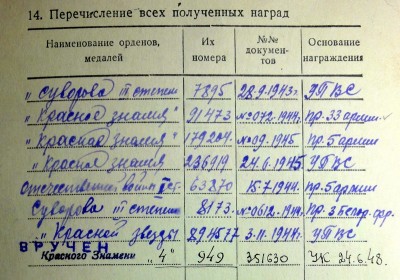 14. Перечисление всех полученных наград
Наименование орденов, медалей Их номера №№ докумен-тов Основание награждения
„Суворова III степени 7895 28.9.1943г. УПВС
„Красное знамя" 91473 №072.1944г. Пр.33 армии
„Красное знамя" 179204 №09.1945 Пр.5 армии
„Красное знамя 236919 24.6.1945 УПВС
Отечественной войны I ст. 63870 15.7.1944 Пр.5 армии
Суворова III степени 8173. №0612.1944г. Пр.3 Белор.фр.
„Красной звезды 3.11.1944г. УПВС
ВРУЧЕН
Красного Знамени „4" 949 351630 УК 24.6.48.